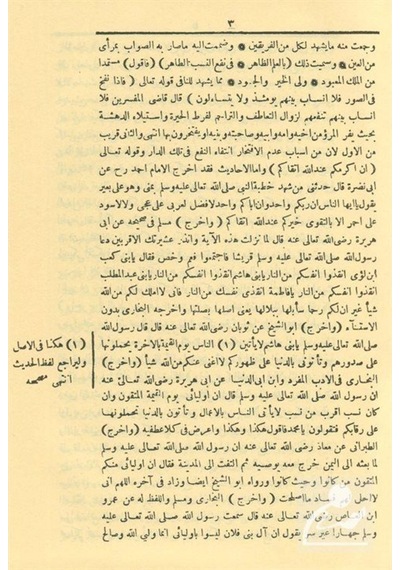 ٣
وجمعت منه ما يشهد لكل من الفريقين * وضممت اليه ما صار به الصواب بمرأى
من العين * وسميت ذلك (بالعلم الظاهر * فى نفع النسب الطاهر) (فاقول) مستمدا
من الملك المعبود * ولى الخير والجود * مما يشهد للنافى قوله تعالى (فاذا نفخ
فى الصور فلا انساب بينهم يومئذ ولا يتساءلون) قال قاضى المفسرين فلا
انساب بينهم تنفعهم لزوال التعاطف والتراحم لفرط الحيرة واستيلاء الدهشة
بحيث يفر المرء من اخيه وامه وابيه وصاحبته وبنيه او يفتخرون بها انتهى والثانى قريب
من الاول لان من اسباب عدم الافتخار انتفاء النفع فى تلك الدار وقوله تعالى
(ان اكرمكم عند الله اتقاكم) واما الاحاديث فقد اخرج الامام احمد رح عن
ابى نضرة قال حدثنى من شهد خطبة النبى صلى الله تعالى عليه وسلم بمنى وهو على بعير
يقول يا ايها الناس ان ربكم واحد وان اباكم واحد لا فضل لعربى على عجمى ولا لاسود
على احمر الا بالتقوى خيركم عند الله اتقاكم (واخرج) مسلم فى صحيحه عن ابى
هريرة رضى الله تعالى عنه قال لما نزلت هذه الآية وانذر عشيرتك الاقربين دعا
رسول الله صلى الله تعالى عليه وسلم قريشا فاجتمعوا فعم وخص فقال يا بنى كعب
ابن لؤى انقذوا انفسكم من النار يا بنى هاشم انقذوا انفسكم من النار يا بنى عبد المطلب
انقذوا انفسكم من النار يا فاطمة انقذى نفسك من النار فانى لا املك لكم من الله
شيأ غير ان لكم رحما سأبلها ببلالها يعنى اصلها بصلتها واخرجه البخارى بدون
الاستثناء (واخرج) ابو الشيخ عن ثوبان رضى الله تعالى عنه قال قال رسول الله
صلى الله تعالى عليه وسلم يا بنى هاشم لا يأتين (١) الناس يوم القيمة بالاخرة يحملونها
على صدورهم وتأتونى بالدنيا على ظهوركم لا اغنى عنكم من الله شيأ (واخرج)
البخارى فى الادب المفرد وابن ابى الدنيا عن ابى هريرة رضى الله تعالى عنه
ان رسول الله صلى الله تعالى عليه وسلم قال ان اوليائى يوم القيمة المتقون وان
كان نسب اقرب من نسب لا يأتى الناس بالاعمال وتأتون بالدنيا تحملونها
على رقابكم فتقولون يا محمد فاقول هكذا وهكذا واعرض فى كلا عطفيه (واخرج)
الطبرانى عن معاذ رضى الله تعالى عنه ان رسول الله صلى الله تعالى عليه وسلم
لما بعثه الى اليمن خرج معه يوصيه ثم التفت الى المدينة فقال ان اوليائى منكم
المتقون من كانوا وحيث كانوا ورواه ابو الشيخ ايضا وزاد فى آخره اللهم انى
لا احل لهم فساد ما اصلحت (واخرج) البخارى ومسلم واللفظ له عن عمرو
ابن العاص رضى الله تعالى عنه قال سمعت رسول الله صلى الله تعالى عليه
وسلم جهارا غير سر يقول ان آل بنى فلان ليسوا باوليائى انما وليى الله وصالح
(١) هكذا فى الاصل
وليراجع لفظ الحديث
انتهى مصححه